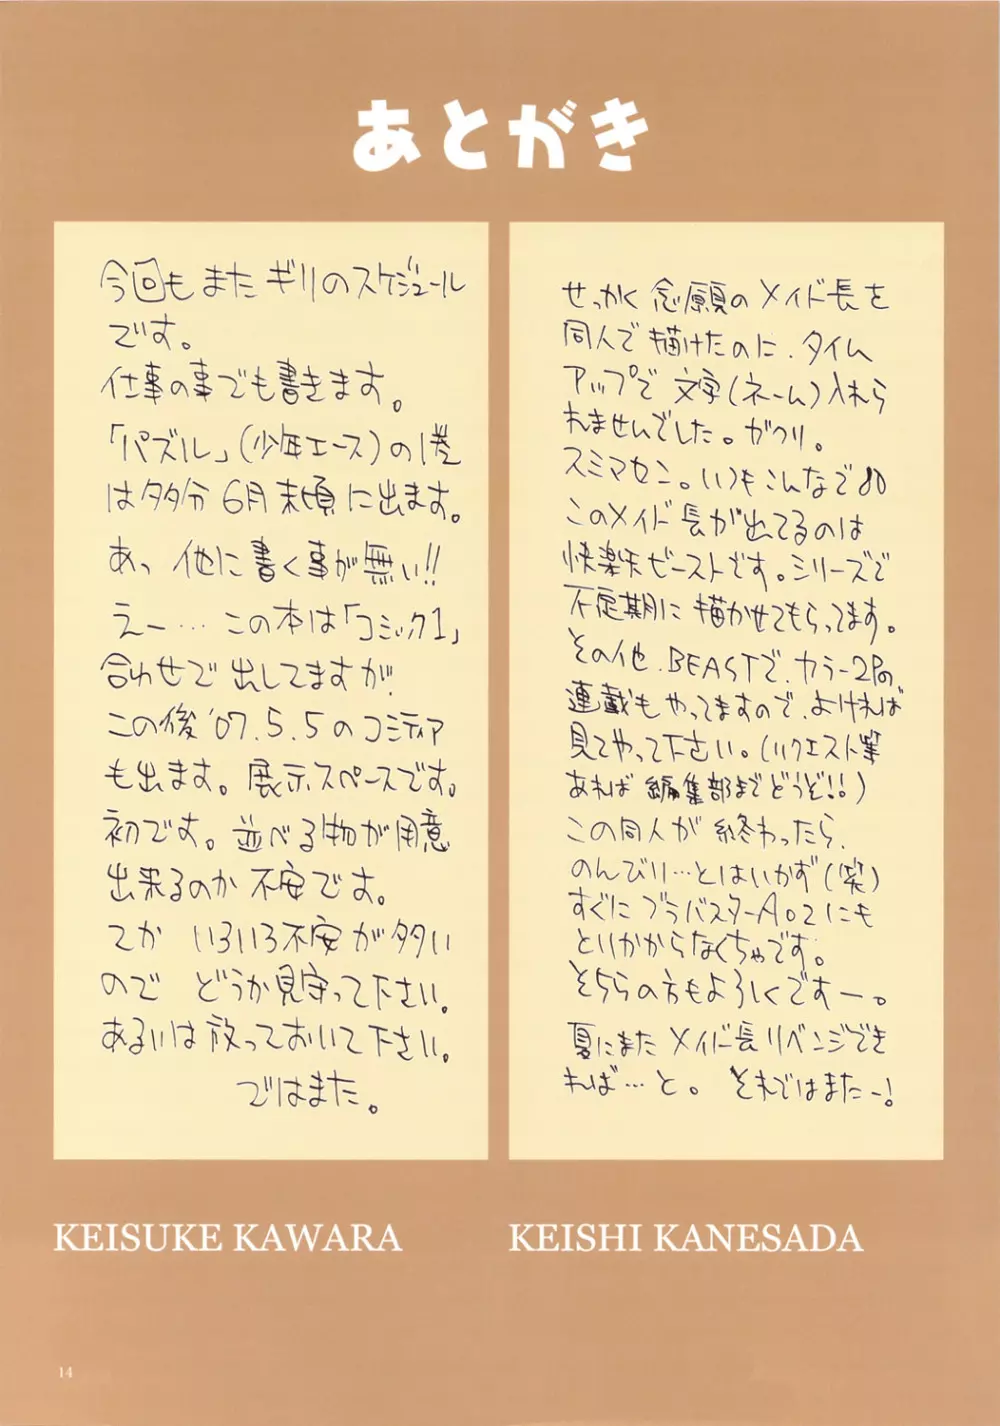 あとがき
今回もまたギリのスケジュール
です。
仕事の事でも書きます。
「パズル」(少年エース)の1巻
は多分6月末頃に出ます。
あっ 他に書く事が無い!!
えー…この本は「コミック1」
合わせで出してますが、
この後'07.5.5のコミティア
も出ます。展示スペースです。
初です。並べる物が用意
出来るのか不安です。
てか いろいろ不安が多い
ので どうか見守って下さい。
あるいは放っておいて下さい。
ではまた。
KEISUKE KAWARA
せっかく念願のメイド長を
同人で描けたのに、タイム
アップで文字(ネーム)入れら
れませんでした。ガクリ。
スミマセン。いつもこんなで
このメイド長が出てるのは
快楽天ビーストです。シリーズで
不定期に描かせてもらってます。
その他、BEASTで、カラー2Pの
連載もやってますので、よければ
見てやって下さい。(リクエスト等
あれば編集部までどうぞ!!)
この同人が終わったら、
のんびり…とはいかず(笑)
すぐにブラバスターA02にも
とりかからなくちゃです。
そちらの方もよろしくですー。
夏にまたメイド長リベンジでき
れば…と。それではまたー!
KEISHI KANESADA
14